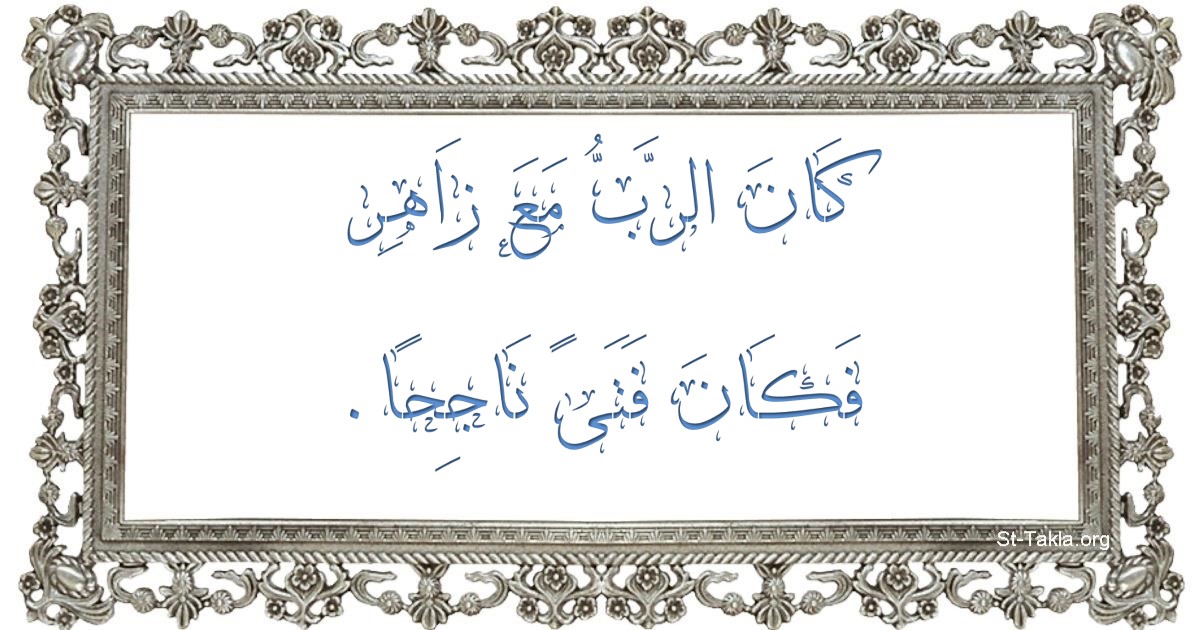 كَانَ الرَّبُّ مَعَ زَاهِر
فَكَانَ فَتَىً نَاجِحًا .
St-Takla.org